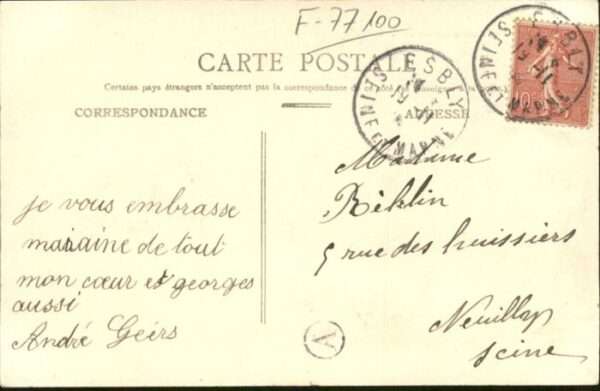 F-77100
CARTE POSTALE
Certains pays étrangers n'acceptent pas la correspondance de ce côté
CORRESPONDANCE
ADRESSE
ESBLY
MARNE
ESBLY
MARNE
10
je vous embrasse
maraine de tout
mon cœur et georges
aussi
André Geirs
A
Madame
5 rue des huissiers
Neuilly
Seine